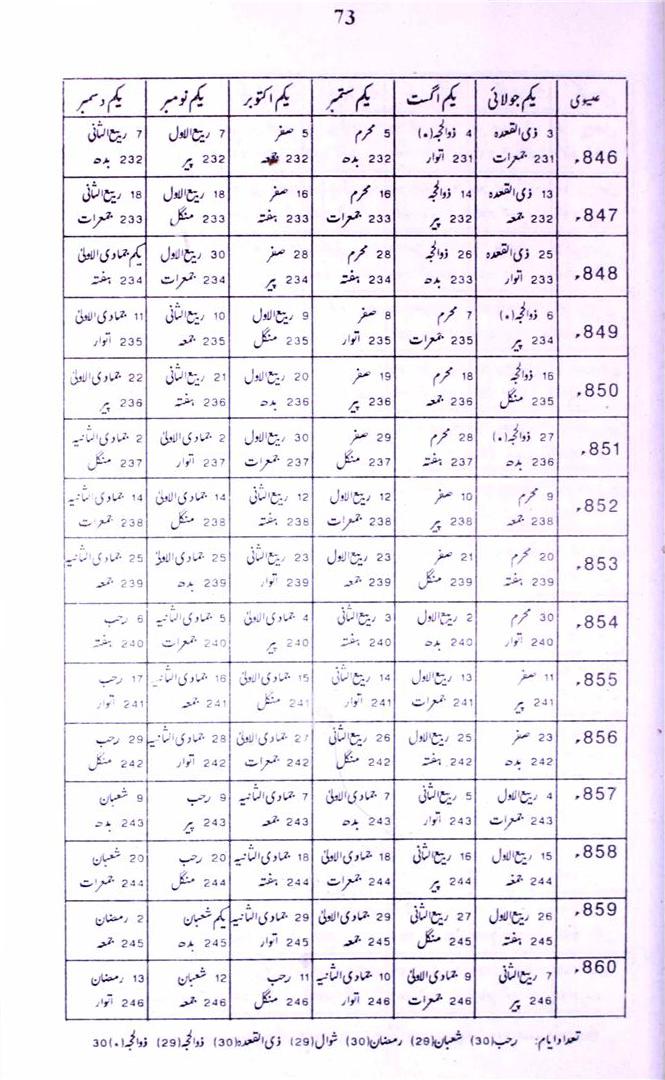 73
عیسوی یکم جولائی یکم اگست یکم ستمبر یکم اکتوبر یکم نومبر یکم دسمبر
846ء 3 ذی القعدہ 4 ذوالحجہ (٠) 5 محرم 5 صفر 7 ربیع الاول 7 ربیع الثانی
231 جمعرات 231 اتوار 232 بدھ 232 جمعہ 232 پیر 232 بدھ
847ء 13 ذی القعدہ 14 ذوالحجہ 16 محرم 16 صفر 18 ربیع الاول 18 ربیع الثانی
232 جمعہ 232 پیر 233 جمعرات 233 ہفتہ 233 منگل 233 جمعرات
848ء 25 ذی القعدہ 26 ذوالحجہ 28 محرم 28 صفر 30 ربیع الاول یکم جمادی الاولیٰ
233 اتوار 233 بدھ 234 ہفتہ 234 پیر 234 جمعرات 234 ہفتہ
849ء 6 ذوالحجہ (٠) 7 محرم 8 صفر 9 ربیع الاول 10 ربیع الثانی 11 جمادی الاولیٰ
234 پیر 235 جمعرات 235 اتوار 235 منگل 235 جمعہ 235 اتوار
850ء 16 ذوالحجہ 18 محرم 19 صفر 20 ربیع الاول 21 ربیع الثانی 22 جمادی الاولیٰ
235 منگل 236 جمعہ 236 پیر 236 بدھ 236 ہفتہ 236 پیر
851ء 27 ذوالحجہ (٠) 28 محرم 29 صفر 30 ربیع الاول 2 جمادی الاولیٰ 2 جمادی الثانیہ
236 بدھ 237 ہفتہ 237 منگل 237 جمعرات 237 اتوار 237 منگل
852ء 9 محرم 10 صفر 12 ربیع الاول 12 ربیع الثانی 14 جمادی الاولیٰ 14 جمادی الثانیہ
238 جمعہ 238 پیر 238 جمعرات 238 ہفتہ 238 منگل 238 جمعرات
853ء 20 محرم 21 صفر 23 ربیع الاول 23 ربیع الثانی 25 جمادی الاولیٰ 25 جمادی الثانیہ
239 ہفتہ 239 منگل 239 جمعہ 239 اتوار 239 بدھ 239 جمعہ
854ء 30 محرم 2 ربیع الاول 3 ربیع الثانی 4 جمادی الاولیٰ 5 جمادی الثانیہ 6 رجب
240 اتوار 240 بدھ 240 ہفتہ 240 پیر 240 جمعرات 240 ہفتہ
855ء 11 صفر 13 ربیع الاول 14 ربیع الثانی 15 جمادی الاولیٰ 16 جمادی الثانیہ 17 رجب
241 پیر 241 جمعرات 241 اتوار 241 منگل 241 جمعہ 241 اتوار
856ء 23 صفر 25 ربیع الاول 26 ربیع الثانی 27 جمادی الاولیٰ 28 جمادی الثانیہ 29 رجب
242 بدھ 242 ہفتہ 242 منگل 242 جمعرات 242 اتوار 242 منگل
857ء 4 ربیع الاول 5 ربیع الثانی 7 جمادی الاولیٰ 7 جمادی الثانیہ 9 رجب 9 شعبان
243 جمعرات 243 اتوار 243 بدھ 243 جمعہ 243 پیر 243 بدھ
858ء 15 ربیع الاول 16 ربیع الثانی 18 جمادی الاولیٰ 18 جمادی الثانیہ 20 رجب 20 شعبان
244 جمعہ 244 پیر 244 جمعرات 244 ہفتہ 244 منگل 244 جمعرات
859ء 26 ربیع الاول 27 ربیع الثانی 29 جمادی الاولیٰ 29 جمادی الثانیہ یکم شعبان 2 رمضان
245 ہفتہ 245 منگل 245 جمعہ 245 اتوار 245 بدھ 245 جمعہ
860ء 7 ربیع الثانی 9 جمادی الاولیٰ 10 جمادی الثانیہ 11 رجب 12 شعبان 13 رمضان
246 پیر 246 جمعرات 246 اتوار 246 منگل 246 جمعہ 246 اتوار
تعداد ایام: رجب (30) شعبان (29) رمضان (30) شوال (29) ذی القعدہ (30) ذوالحجہ (29) ذوالحجہ (٠) 30